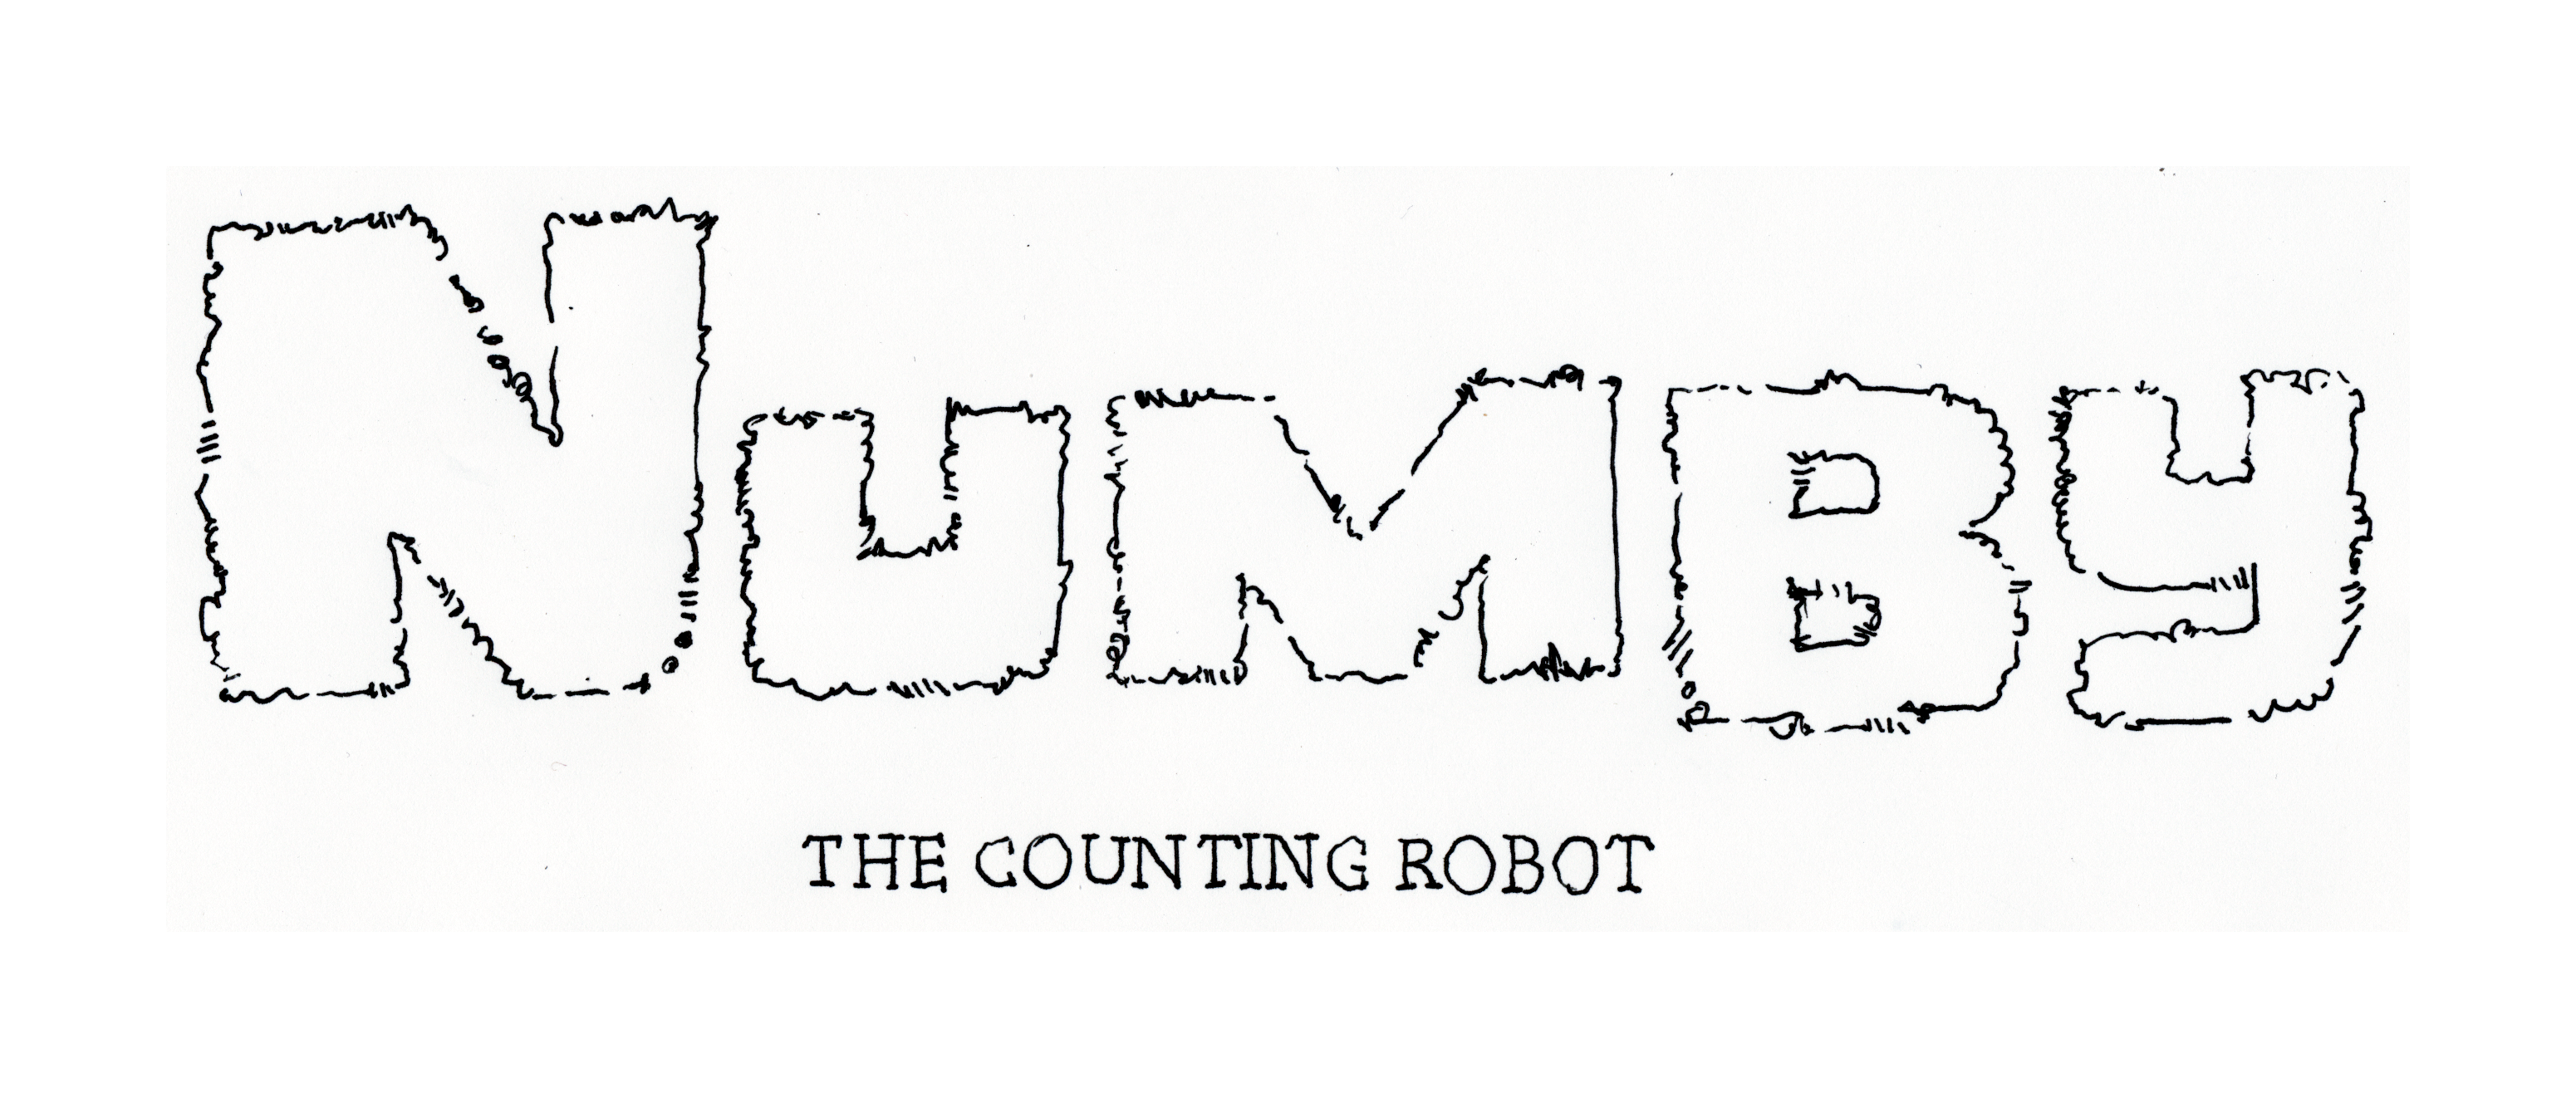 NuMBy
THE COUNTING ROBOT